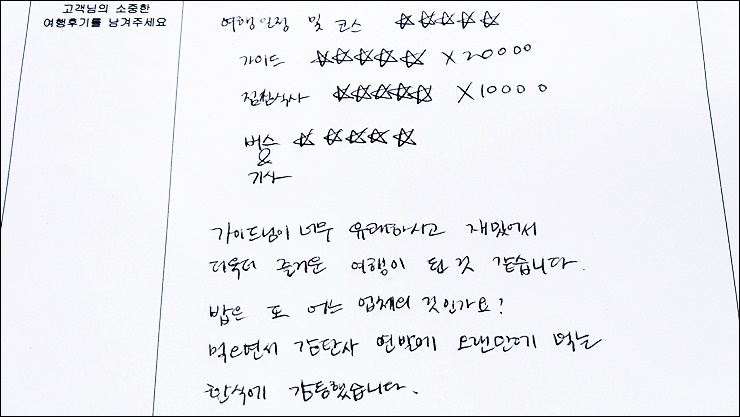 고객님의 소중한
여행후기를 남겨주세요
여행일정 및 코스 ☆☆☆☆☆
가이드 ☆☆☆☆☆ X 20000
점심식사 ☆☆☆☆☆ X 10000
버스 ☆☆☆☆☆
&
기사
가이드님이 너무 유쾌하시고 재밌어서
더욱더 즐거운 여행이 된 것 같습니다.
밥은 또 어느 업체의 것인가요?
먹으면서 감탄사 연발에 오랜만에 먹는
한식에 감동했습니다.